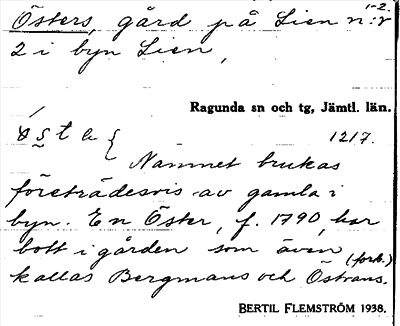 1-2.
Östers, gård på Lien n:r
2 i byn Lien,
Ragunda sn och tg, Jämtl. län.
1217.
Namnet brukas
företrädesvis av gamla i
byn. En Öster, f. 1790, har
bott i gården som även
(fork.)
kallas Bergmans och Östrans.
BERTIL FLEMSTRÖM 1938.